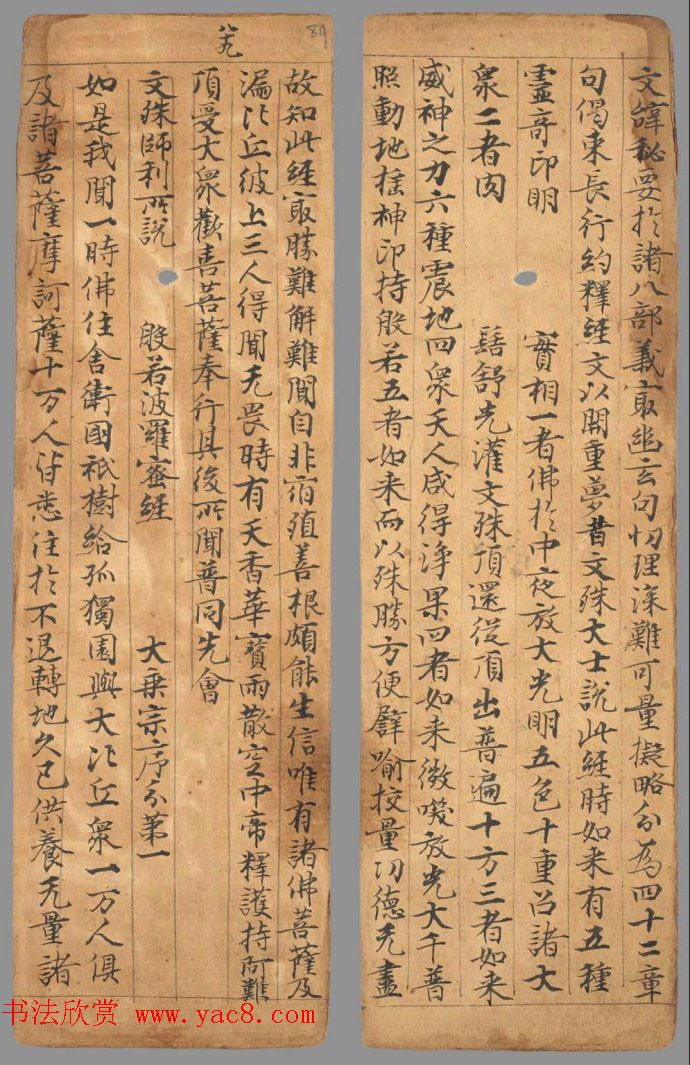 文緯秘要於諸八部義㝡幽玄句切理深難可量擬略分為四十二章
句偈束長行約釋經文以開重夢昔文殊大士說此經時如来有五種
靈奇印明 實相一者佛於中夜放大光明五色十重召諸大
衆二者肉 髻舒光灌文殊頂還從頂出普遍十方三者如来
威神之力六種震地四衆天人咸得淨果四者如来微㗛放光大千普
照動地摇神印持般若五者如来而以殊勝方便譬喻挍量功德无盡
苀 89
故知此經㝡勝難解難聞自非宿殖善根頗能生信唯有諸佛菩薩及
漏比丘彼上三人得聞无畏時有天香華寶雨散空中帝釋護持阿難
頂受大衆歡喜菩薩奉行其後所聞普同先會
文殊師利所說 般若波羅蜜經 大乗宗序分第一
如是我聞一時佛住舍衛國祇樹給孤獨園與大比丘衆一万人俱
及諸菩薩摩訶薩十万人皆悉住於不退轉地久已供養无量諸
书法欣赏 www.yac8.com